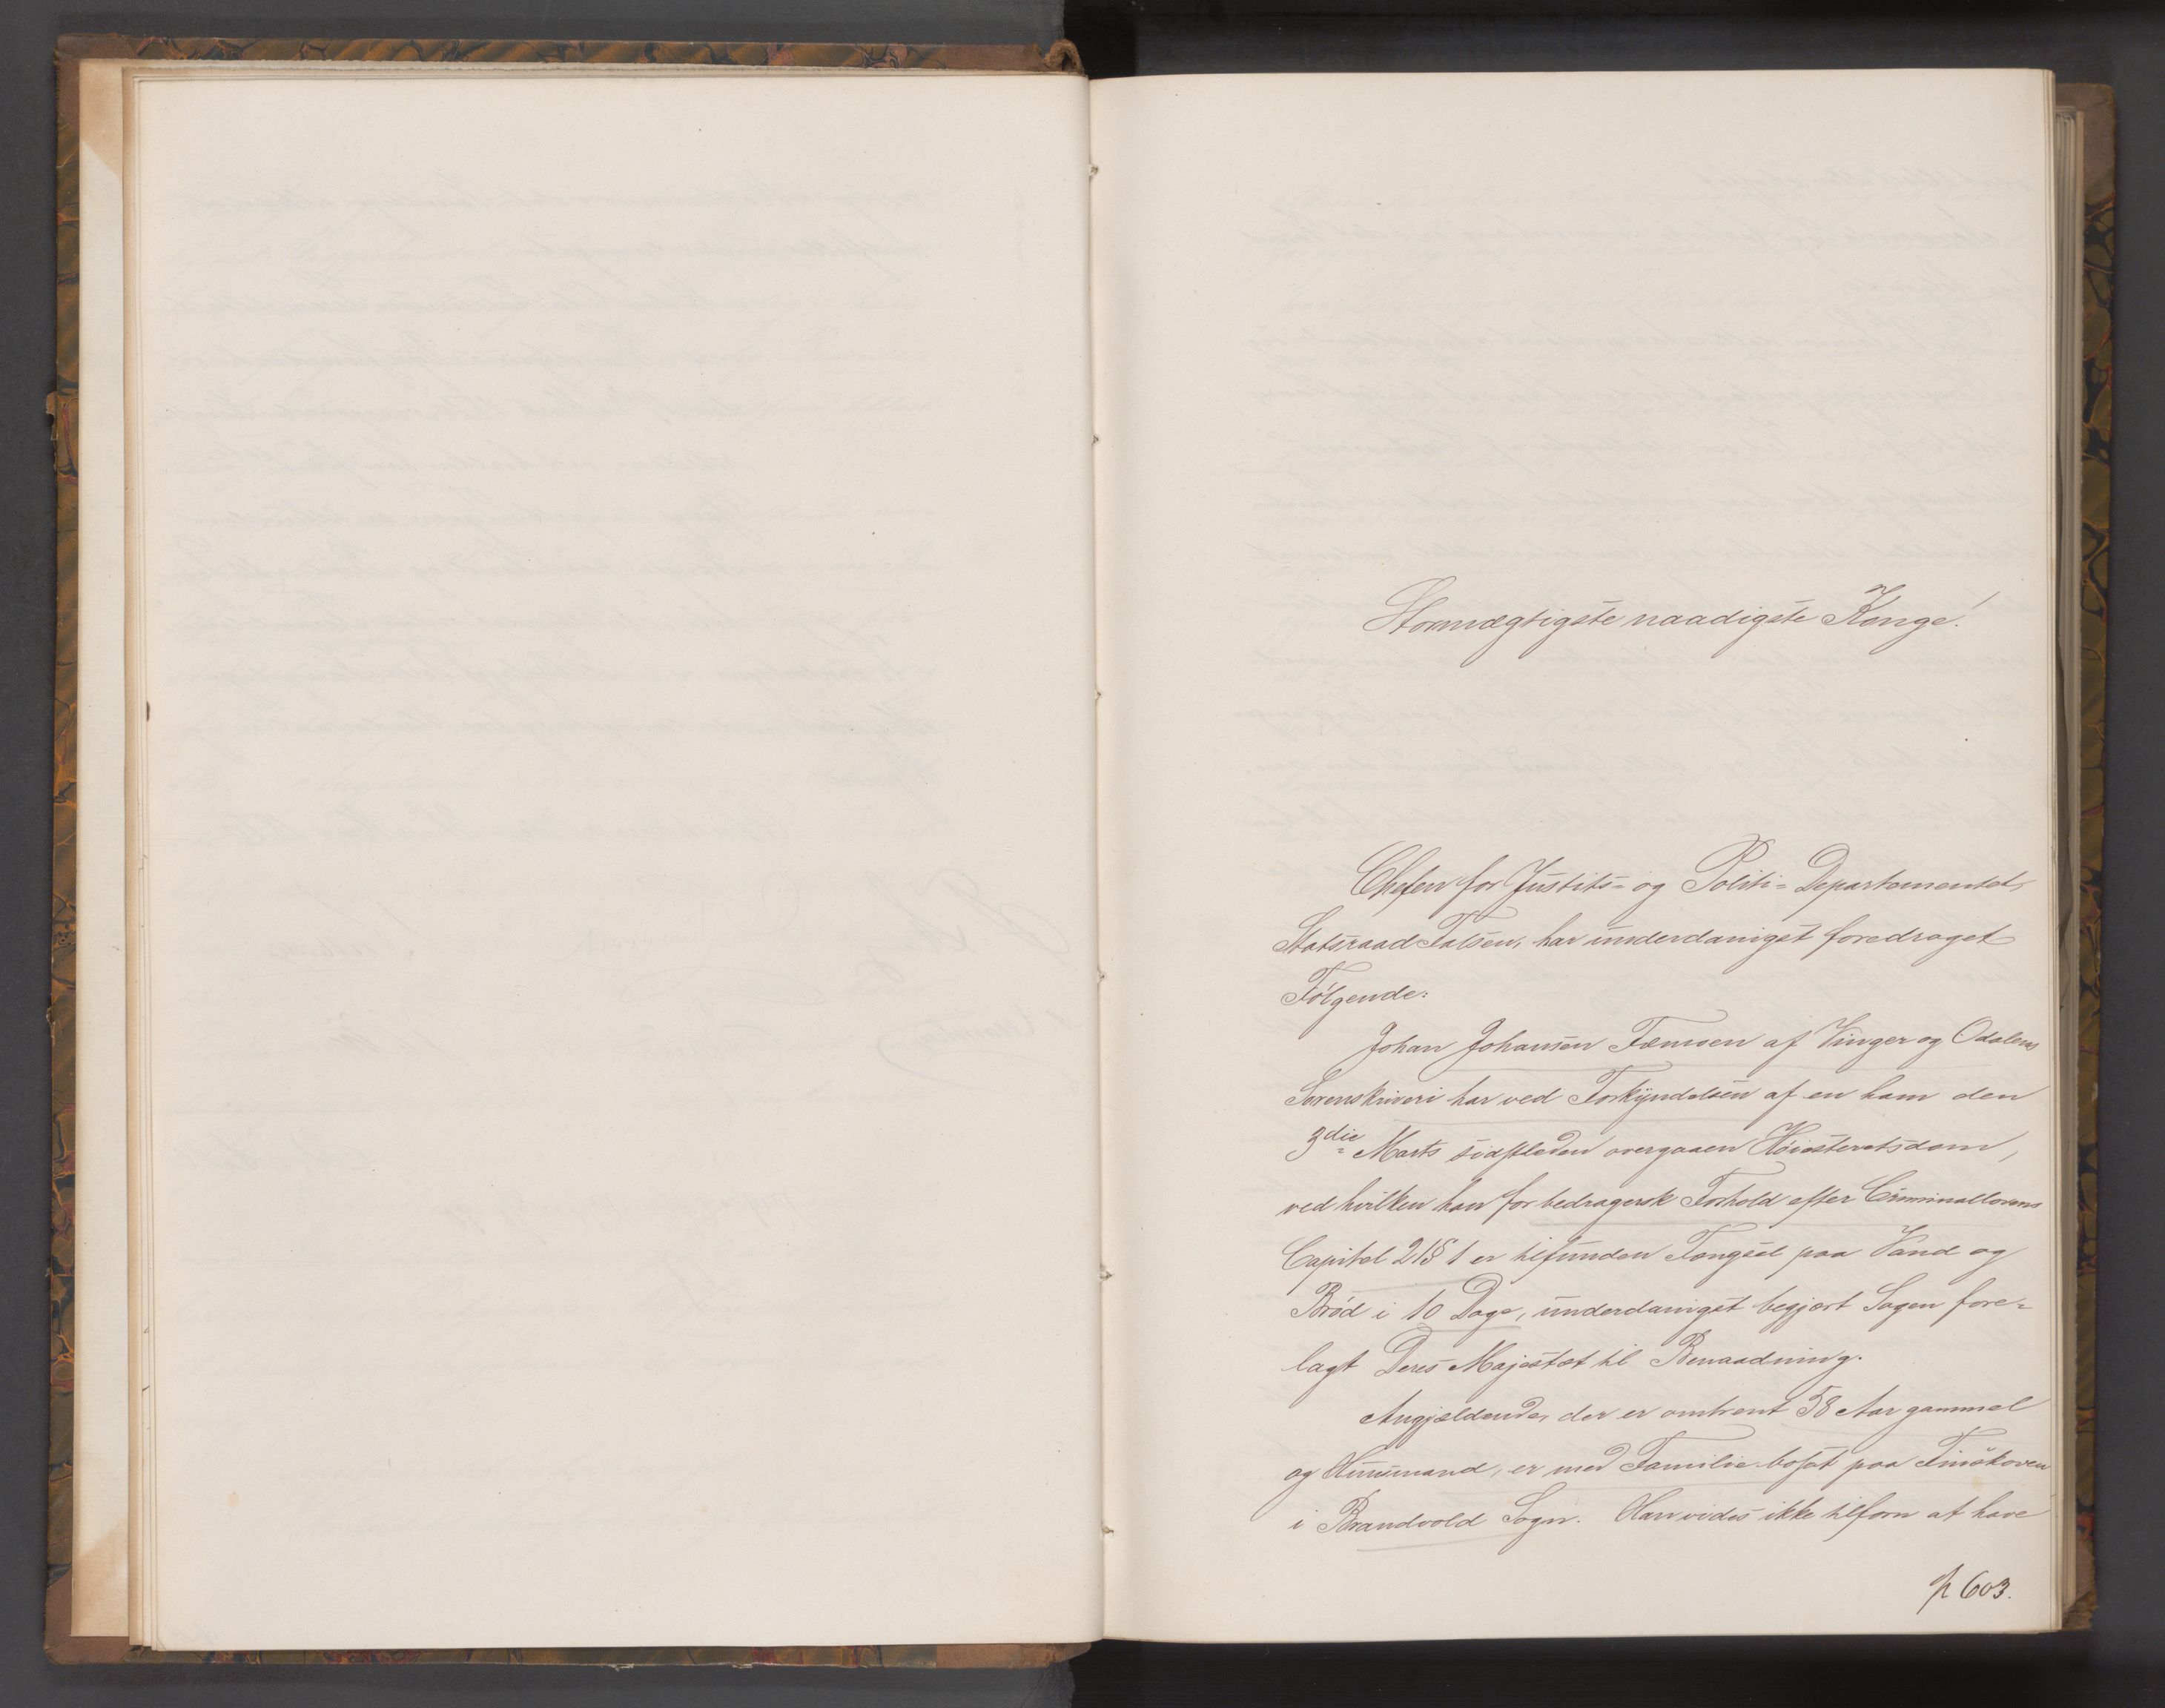 Stormægtigste naadigste Konge!
Chefen for Justits= og Politi=Departementet,
Statsraad Falsen, har underdanigst foredraget
Følgende:
Johan Johansen Tæmoen af Vinger og Odalens
Sorenskriveri har ved Forkyndelsen af en ham den
3die Marts sidstleden overgaaen Høiesteretsdom,
ved hvilken han for bedragersk Forhold efter Criminallovens
Capitel 21 § 1 er tilfunden Fængsel paa Vand og
Brød i 10 Dage, underdanigst begjært Sagen fore=
lagt Deres Majestæt til Benaadning.
Angjældende, der er omtrent 58 Aar gammel
og Huusmand, er med Familie bosat paa Finskoven
i Brandvold Sogn. Han vides ikke tilforn at have
p 603.